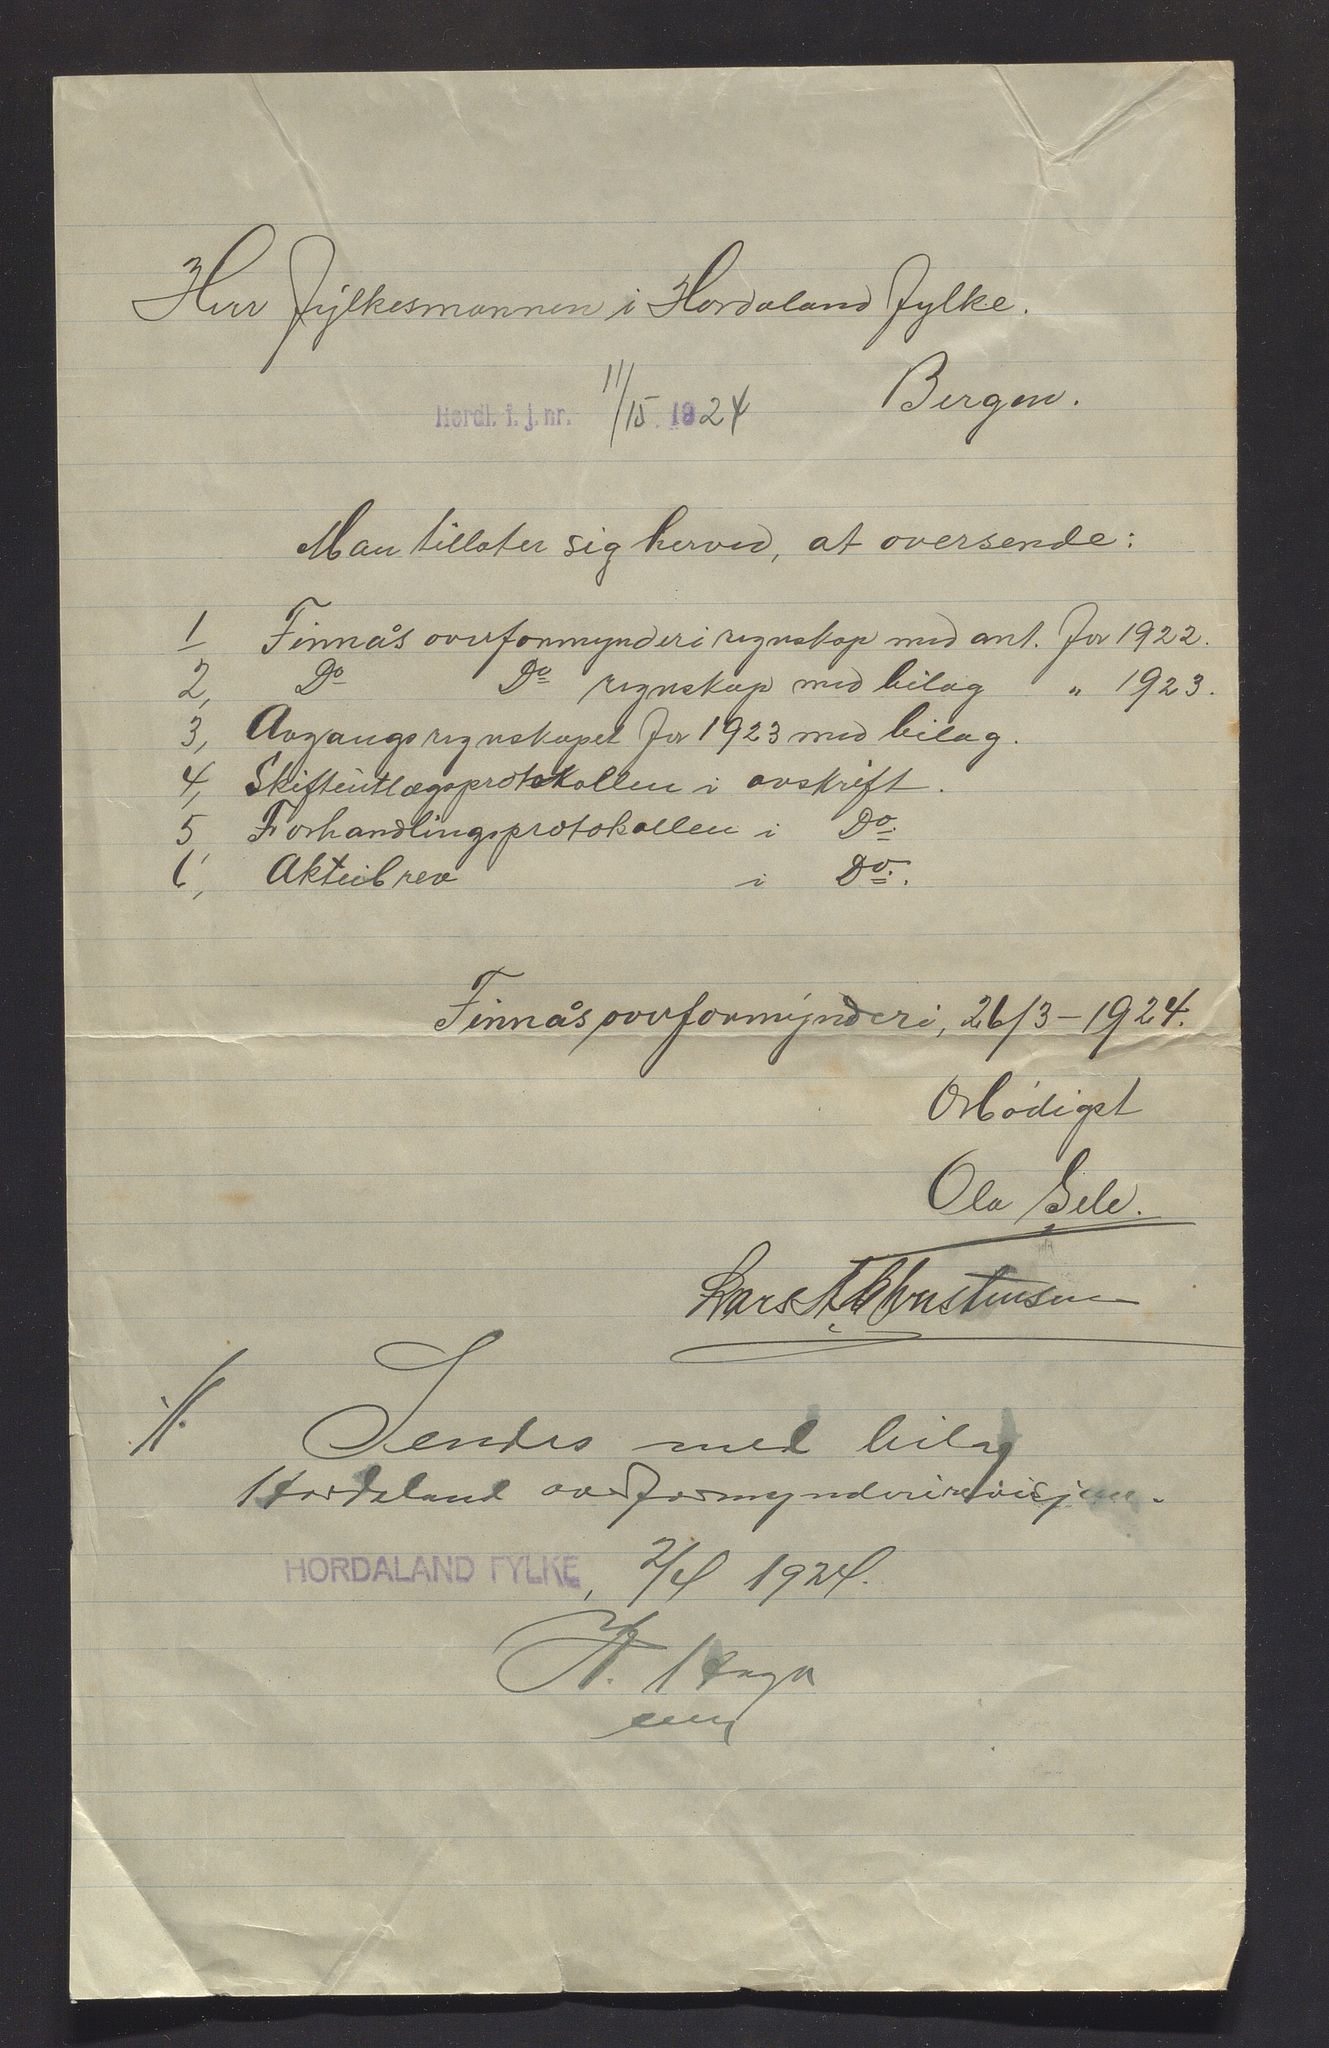 Herr Fylkesmannen i Hordaland fylke.
Bergen.
Hordl. f. j. nr. 11/15 1924
Man tillater sig herved, at oversende:
1 Finnås overformynderi regnskap med ant. for 1922.
2, Do Do regnskap med bilag " 1923.
3, Avgangsregnskapet for 1923 med bilag.
4, Skifteutlægsprotokollen i avskrift.
5, Forhandlingsprotokollen i Do.
6, Aktivbrev i Do.
Finnås overformynderi, 26/3-1924.
Ærbødigst
Ola Gele.
Lars A. Christensen
Sendes med bilag
Hordaland overformynderirevisjon.
HORDALAND FYLKE, 2/4 1924.
Haga